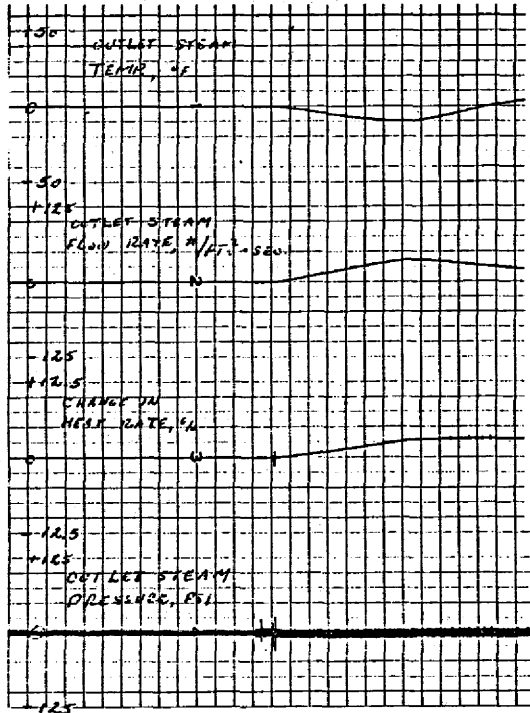 +50
OUTLET STEAM
TEMP, °F
0
1
-50
+125
OUTLET STEAM
FLOW RATE, #/FT.²-SEC.
0
2
-125
+12.5
CHANGE IN
HEAT RATE, %
0
3
-12.5
+125
OUTLET STEAM
PRESSURE, PSI
0
-125